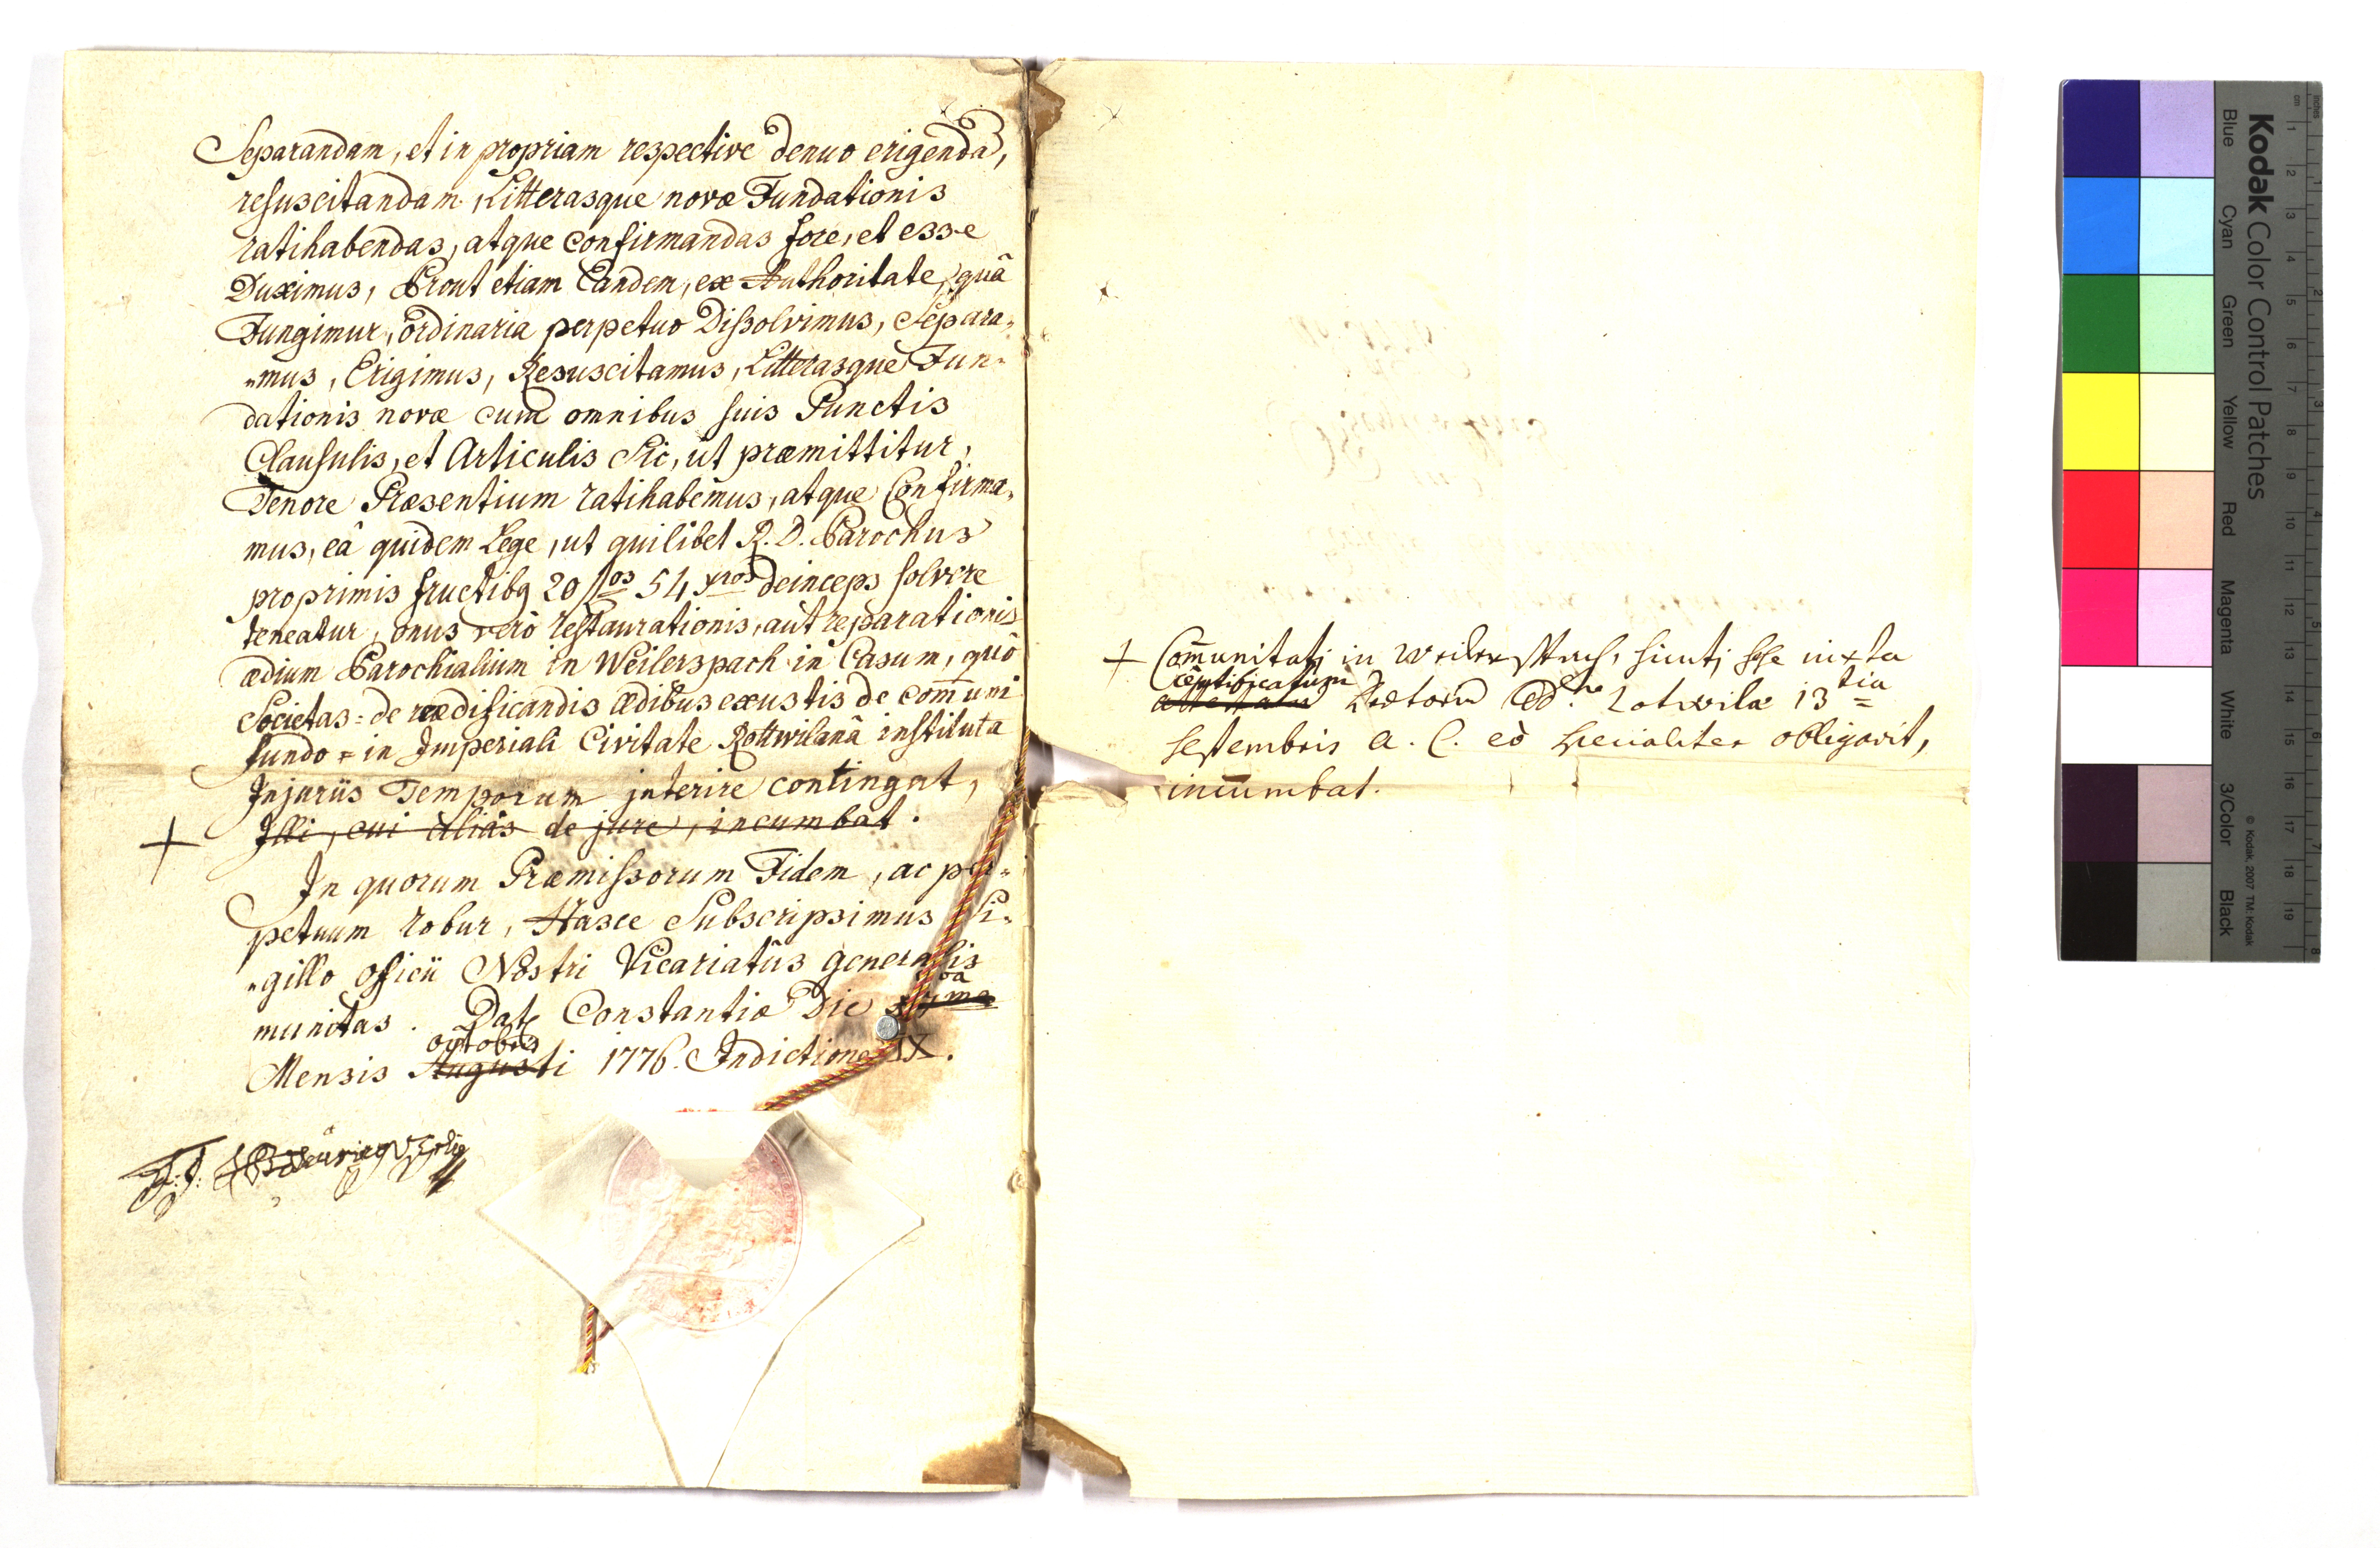 Separandam, et in propriam respective denuo erigendã,
resuscitandam, Litterasque novæ Fundationis
ratihabendas, atque confirmandas fore, et esse
Duximus, Prout etiam Eandem, ex Authoritate, quâ
Fungimur, ordinaria perpetuo Dißolvimus, Separa„
„mus, Erigimus, Resuscitamus, Litterasque Fun„
dationis novæ cum omnibus suis Punctis
Clausulis, et Articulis Sic, ut præmittitur,
Tenore Præsentium ratihabemus, atque Confirma„
mus, eâ quidem Lege, ut quilibet R. D. Parochus
pro primis fructibq 20 flos 54 xros deinceps solvere
teneatur, onus verò restaurationis, aut reparationis
ædium Parochialium in Weilerspach in Casum, quô
Societas = de reædificandis ædibus exustis de com̄uni
fundo = in Imperiali Civitate Rottwilanâ instituta
Injuriis Temporum interire contingat,
+ Illi, cui aliàs de jure, incumbat.
In quorum Præmißorum Fidem, ac per„
petuum robur, Hasce Subscripsimus Si„
„gillo officii Nostri Vicariatûs generalis
munitas. Dat Constantiæ Die
octobris
Mensis Augusti 1776. Indictione IX.
+ Com̄unitati in Weilerspach, sicuti sese iuxta
certificatum
attestatum Rottwilæ 13tia
septembris a. c. eò specialiter obligavit,
incumbat.
Kodak Color Control Patches
Blue Cyan Green Yellow Red Magenta White 3/Color Black
© Kodak, 2007 TM: Kodak
inches
1 2 3 4 5 6 7 8
cm
1 2 3 4 5 6 7 8 9 10 11 12 13 14 15 16 17 18 19